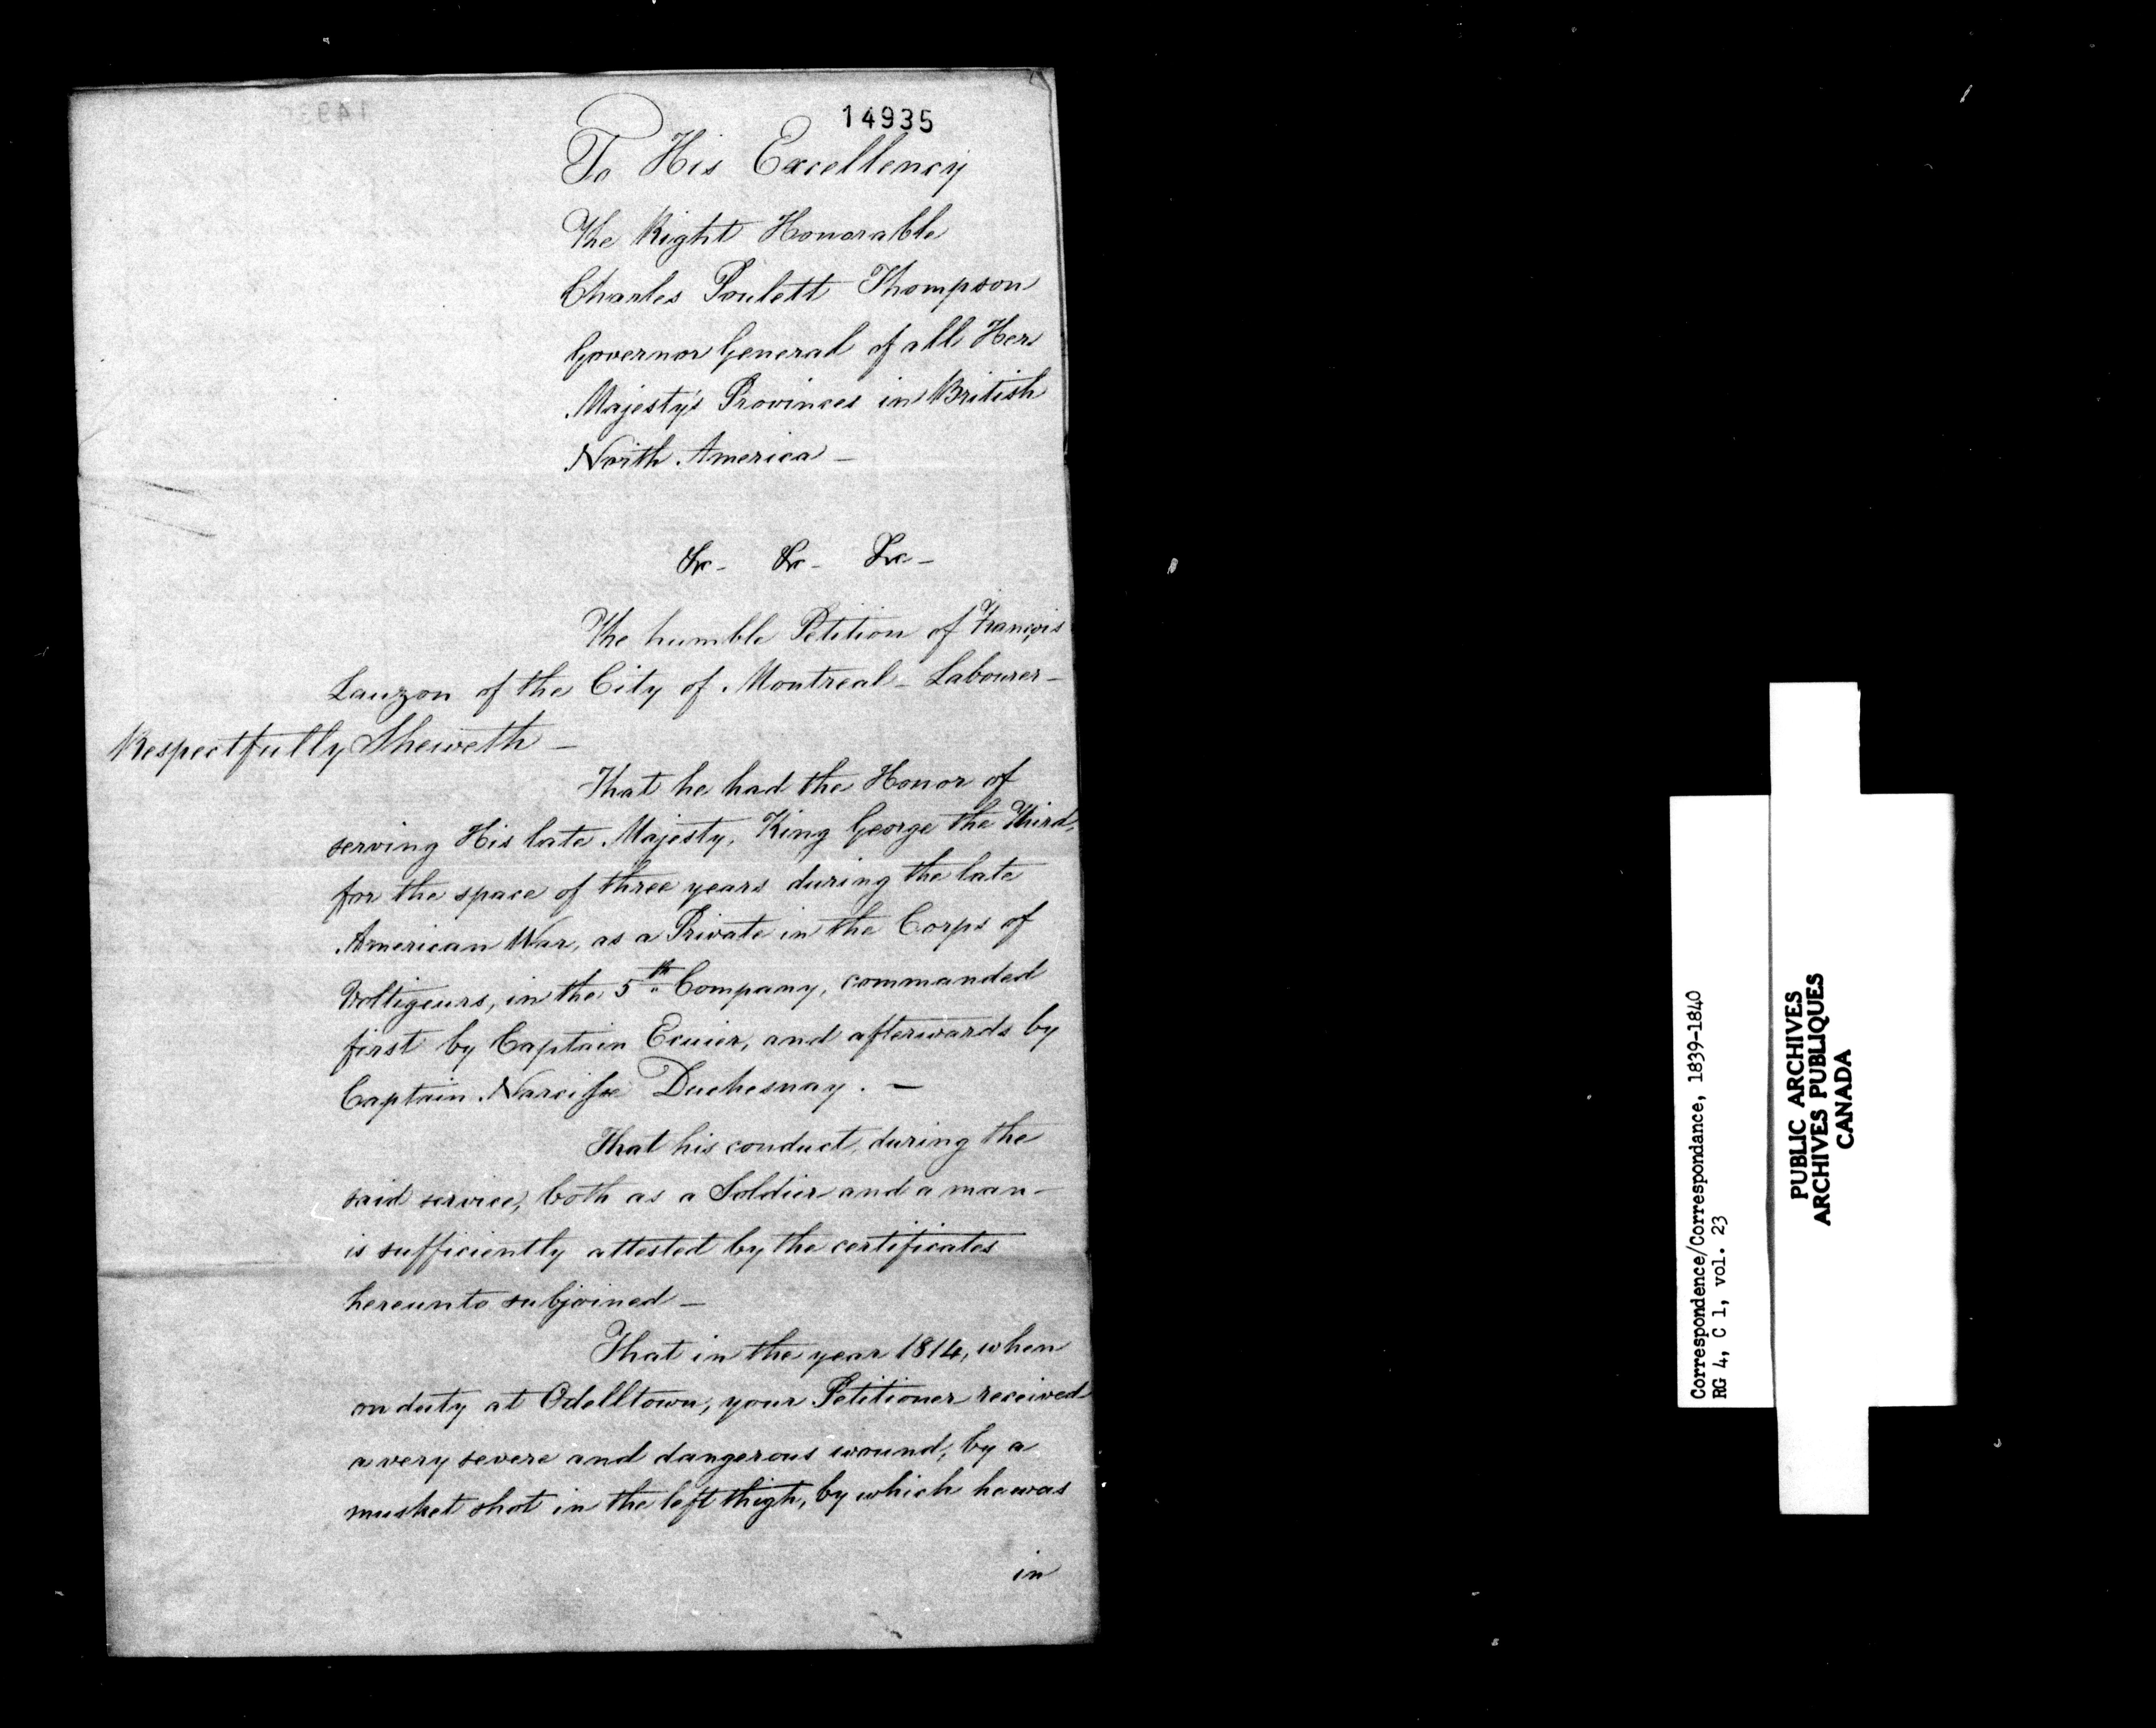 14935
To His Excellency
The Right Honorable
Charles Poulett Thompson
Governor General of all Her
Majesty's Provinces in British
North America —
&c - &c - &c -
The humble Petition of François
Lauzon of the City of Montreal - Labourer -
Respectfully Sheweth —
That he had the Honor of
serving His late Majesty, King George the Third,
for the space of three years during the late
American War, as a Private in the Corps of
Voltigeurs, in the 5th Company, commanded
first by Captain Ecuier, and afterwards by
Captain Narcisse Duchesnay. —
That his conduct, during the
said service, both as a Soldier and a man -
is sufficiently attested by the certificates
hereunto subjoined —
That in the year 1814, when
on duty at Odelltown, your Petitioner received
a very severe and dangerous wound, by a
musket shot in the left thigh, by which he was
in
Correspondence/Correspondance, 1839-1840
RG 4, C 1, vol. 23
PUBLIC ARCHIVES
ARCHIVES PUBLIQUES
CANADA